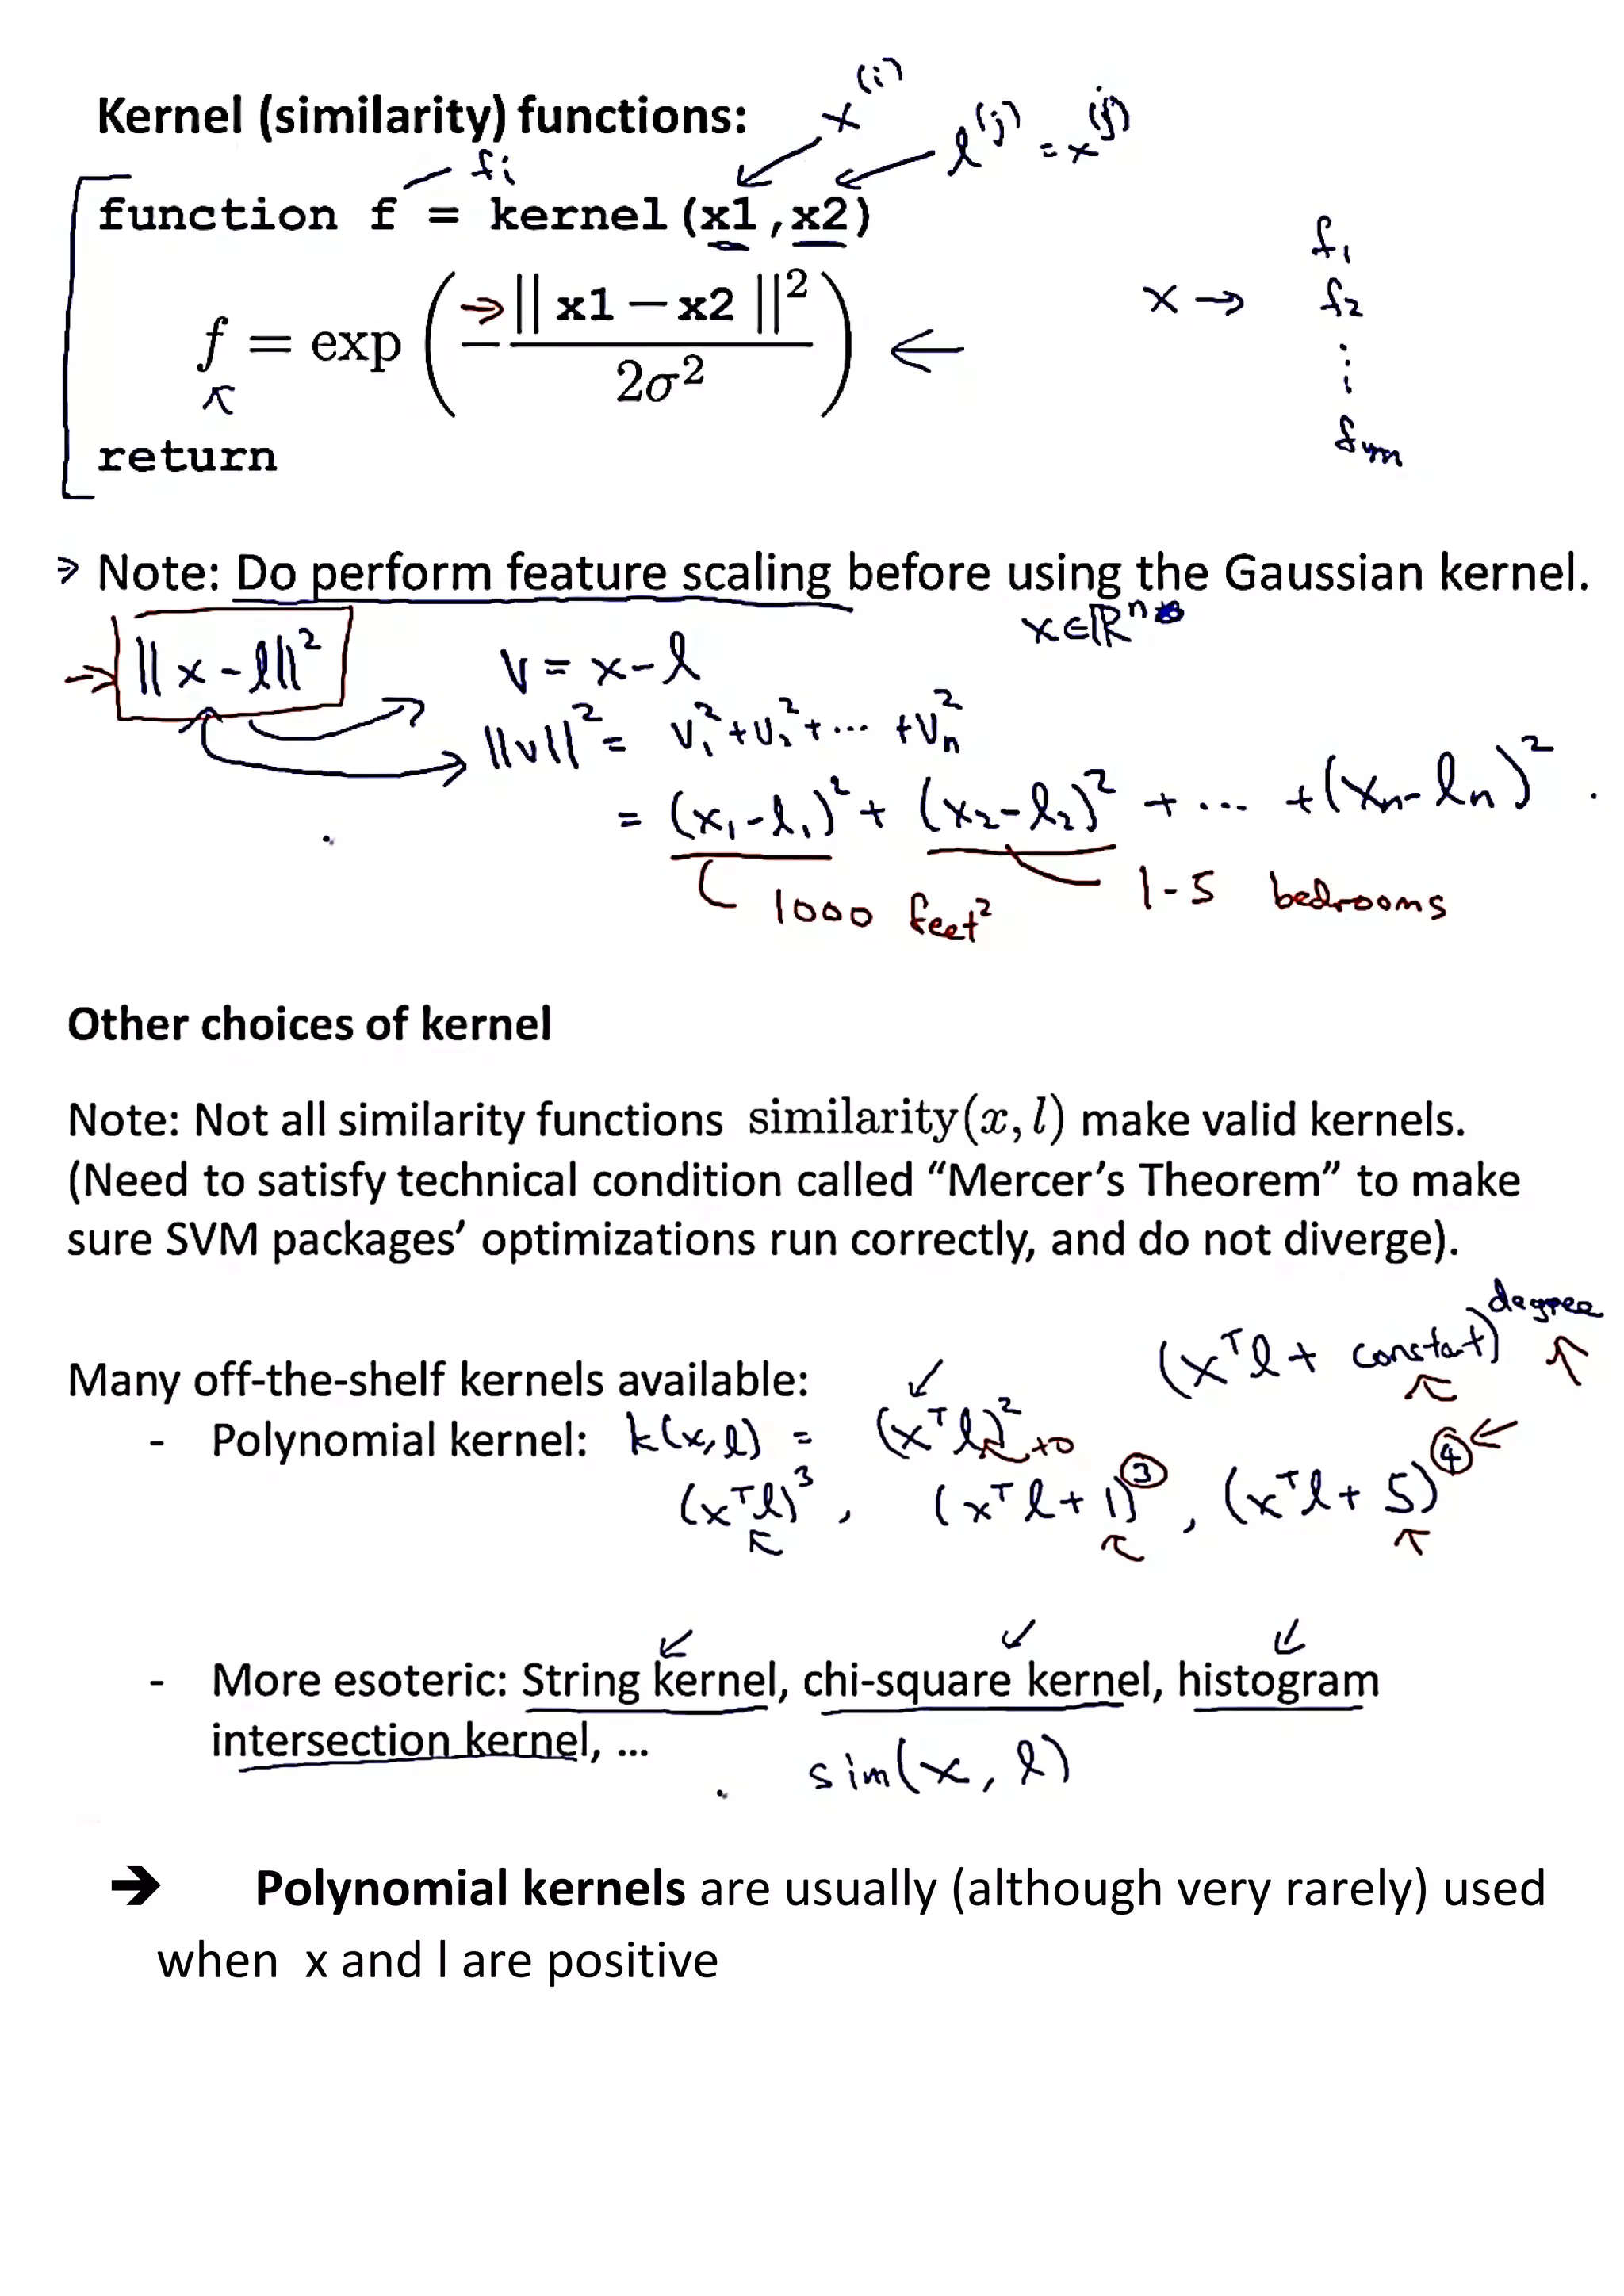 x^(i)
Kernel (similarity) functions:
l^(j) = x^(j)
f_i
function f = kernel(x1,x2)
f = exp ( - || x1 - x2 ||² / 2σ² )
return
x → f₁ f₂ ⋮ f_m
Note: Do perform feature scaling before using the Gaussian kernel.
x ∈ ℝⁿ
||x - l||²
v = x - l
||v||² = v₁² + v₂² + ... + vₙ²
= (x₁ - l₁)² + (x₂ - l₂)² + ... + (xₙ - lₙ)²
1000 feet²
1-5 bedrooms
Other choices of kernel
Note: Not all similarity functions similarity(x, l) make valid kernels.
(Need to satisfy technical condition called “Mercer’s Theorem” to make
sure SVM packages’ optimizations run correctly, and do not diverge).
(xᵀl + constant)^degree
Many off-the-shelf kernels available:
- Polynomial kernel: k(x, l) = (xᵀl)² +0
(xᵀl)³, (xᵀl + 1)³, (xᵀl + 5)⁴
- More esoteric: String kernel, chi-square kernel, histogram
intersection kernel, ...
sim(x, l)
→ Polynomial kernels are usually (although very rarely) used
when x and l are positive